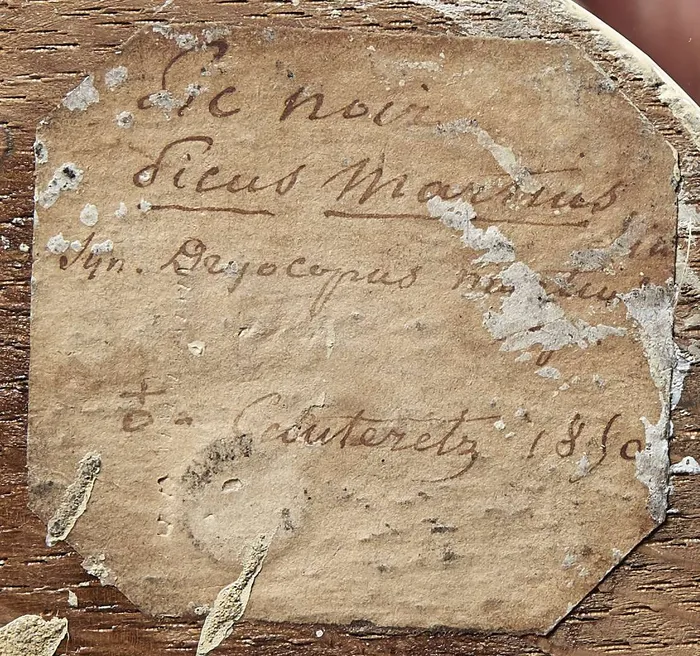 Pic noir
Picus Martius
Lin
Syn. Dryocopus martius
♁ - Cauteretz 1850